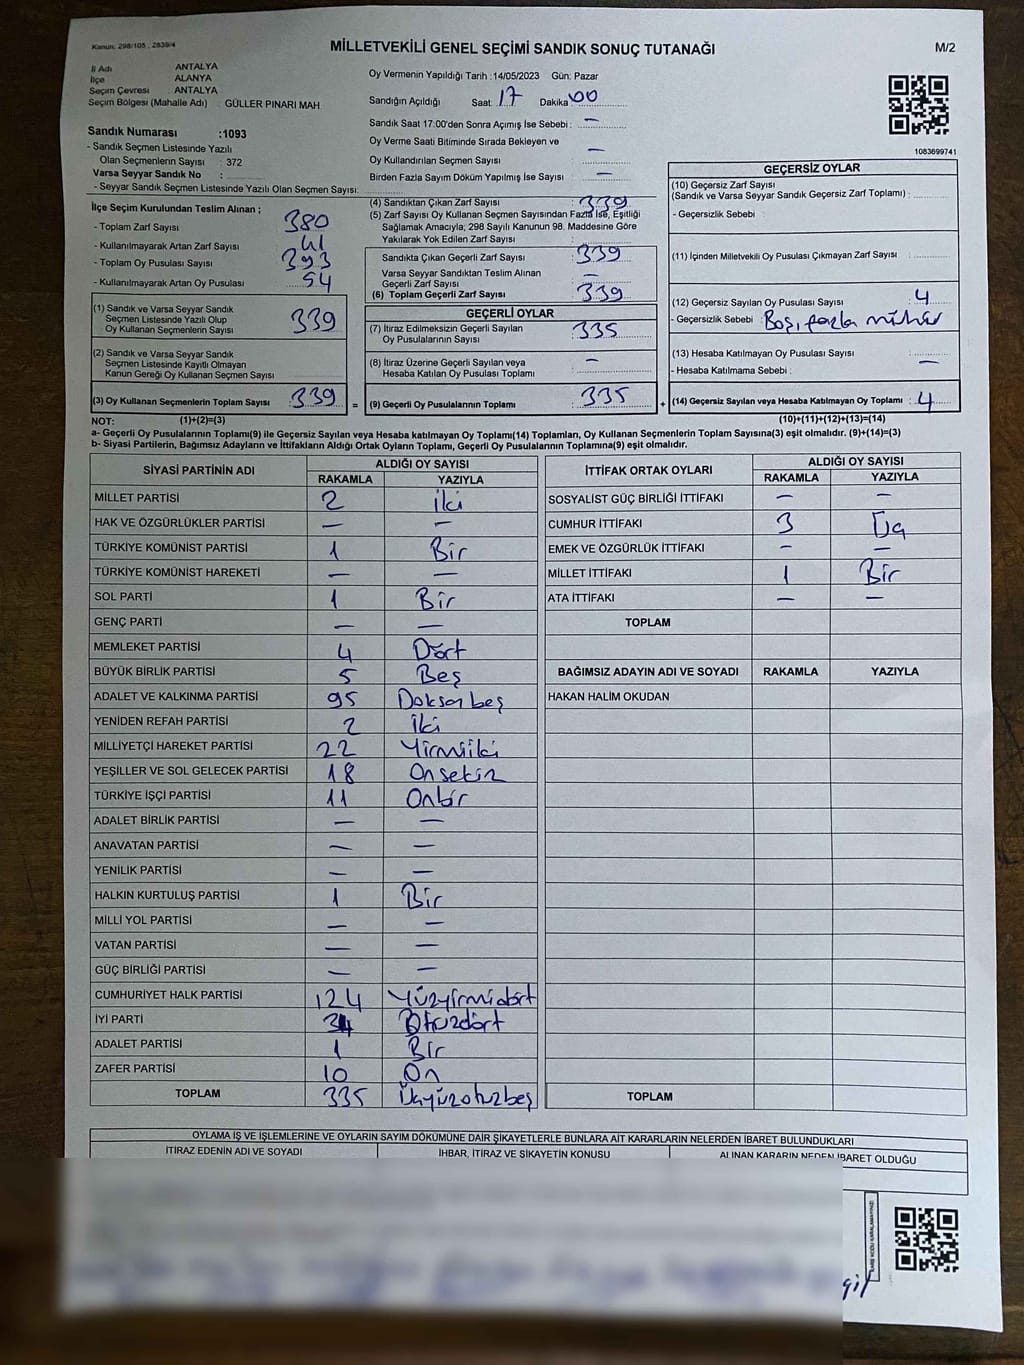 Kanun: 298/105 , 2839/4
MİLLETVEKİLİ GENEL SEÇİMİ SANDIK SONUÇ TUTANAĞI
M/2
İl Adı : ANTALYA
İlçe : ALANYA
Seçim Çevresi : ANTALYA
Seçim Bölgesi (Mahalle Adı) : GÜLLER PINARI MAH
Sandık Numarası :1093
- Sandık Seçmen Listesinde Yazılı
Olan Seçmenlerin Sayısı : 372
Varsa Seyyar Sandık No :
- Seyyar Sandık Seçmen Listesinde Yazılı Olan Seçmen Sayısı:
Oy Vermenin Yapıldığı Tarih :14/05/2023 Gün: Pazar
Sandığın Açıldığı Saat: 17 Dakika: 00
Sandık Saat 17:00'den Sonra Açımış İse Sebebi : —
Oy Verme Saati Bitiminde Sırada Bekleyen ve
Oy Kullandırılan Seçmen Sayısı : —
Birden Fazla Sayım Döküm Yapılmış İse Sayısı : —
1083699741
İlçe Seçim Kurulundan Teslim Alınan ;
- Toplam Zarf Sayısı : 380
- Kullanılmayarak Artan Zarf Sayısı : 41
- Toplam Oy Pusulası Sayısı : 393
- Kullanılmayarak Artan Oy Pusulası : 54
(1) Sandık ve Varsa Seyyar Sandık
Seçmen Listesinde Yazılı Olup
Oy Kullanan Seçmenlerin Sayısı : 339
(2) Sandık ve Varsa Seyyar Sandık
Seçmen Listesinde Kayıtlı Olmayan
Kanun Gereği Oy Kullanan Seçmen Sayısı
(3) Oy Kullanan Seçmenlerin Toplam Sayısı : 339
(4) Sandıktan Çıkan Zarf Sayısı : 339
(5) Zarf Sayısı Oy Kullanan Seçmen Sayısından Fazla İse, Eşitliği
Sağlamak Amacıyla; 298 Sayılı Kanunun 98. Maddesine Göre
Yakılarak Yok Edilen Zarf Sayısı :
Sandıkta Çıkan Geçerli Zarf Sayısı : 339
Varsa Seyyar Sandıktan Teslim Alınan
Geçerli Zarf Sayısı : —
(6) Toplam Geçerli Zarf Sayısı : 339
GEÇERLİ OYLAR
(7) İtiraz Edilmeksizin Geçerli Sayılan
Oy Pusulalarının Sayısı : 335
(8) İtiraz Üzerine Geçerli Sayılan veya
Hesaba Katılan Oy Pusulası Toplamı : —
= (9) Geçerli Oy Pusulalarının Toplamı : 335
GEÇERSİZ OYLAR
(10) Geçersiz Zarf Sayısı
(Sandık ve Varsa Seyyar Sandık Geçersiz Zarf Toplamı) :
- Geçersizlik Sebebi :
(11) İçinden Milletvekili Oy Pusulası Çıkmayan Zarf Sayısı :
(12) Geçersiz Sayılan Oy Pusulası Sayısı : 4
- Geçersizlik Sebebi : Boş, fazla mühür
(13) Hesaba Katılmayan Oy Pusulası Sayısı :
- Hesaba Katılmama Sebebi : —
+ (14) Geçersiz Sayılan veya Hesaba Katılmayan Oy Toplamı : 4
NOT: (1)+(2)=(3) (10)+(11)+(12)+(13)=(14)
a- Geçerli Oy Pusulalarının Toplamı(9) ile Geçersiz Sayılan veya Hesaba katılmayan Oy Toplamı(14) Toplamları, Oy Kullanan Seçmenlerin Toplam Sayısına(3) eşit olmalıdır. (9)+(14)=(3)
b- Siyasi Partilerin, Bağımsız Adayların ve İttifakların Aldığı Ortak Oyların Toplamı, Geçerli Oy Pusulalarının Toplamına(9) eşit olmalıdır.
SİYASİ PARTİNİN ADI ALDIĞI OY SAYISI
RAKAMLA YAZIYLA
MİLLET PARTİSİ 2 İki
HAK VE ÖZGÜRLÜKLER PARTİSİ — —
TÜRKİYE KOMÜNİST PARTİSİ 1 Bir
TÜRKİYE KOMÜNİST HAREKETİ — —
SOL PARTİ 1 Bir
GENÇ PARTİ — —
MEMLEKET PARTİSİ 4 Dört
BÜYÜK BİRLİK PARTİSİ 5 Beş
ADALET VE KALKINMA PARTİSİ 95 Doksanbeş
YENİDEN REFAH PARTİSİ 2 İki
MİLLİYETÇİ HAREKET PARTİSİ 22 Yirmiiki
YEŞİLLER VE SOL GELECEK PARTİSİ 18 Onsekiz
TÜRKİYE İŞÇİ PARTİSİ 11 Onbir
ADALET BİRLİK PARTİSİ — —
ANAVATAN PARTİSİ — —
YENİLİK PARTİSİ — —
HALKIN KURTULUŞ PARTİSİ 1 Bir
MİLLİ YOL PARTİSİ — —
VATAN PARTİSİ — —
GÜÇ BİRLİĞİ PARTİSİ — —
CUMHURİYET HALK PARTİSİ 124 Yüzyirmidört
İYİ PARTİ 34 Otuzdört
ADALET PARTİSİ 1 Bir
ZAFER PARTİSİ 10 On
TOPLAM 335 Üçyüzotuzbeş
İTTİFAK ORTAK OYLARI ALDIĞI OY SAYISI
RAKAMLA YAZIYLA
SOSYALİST GÜÇ BİRLİĞİ İTTİFAKI — —
CUMHUR İTTİFAKI 3 Üç
EMEK VE ÖZGÜRLÜK İTTİFAKI — —
MİLLET İTTİFAKI 1 Bir
ATA İTTİFAKI — —
TOPLAM
BAĞIMSIZ ADAYIN ADI VE SOYADI RAKAMLA YAZIYLA
HAKAN HALİM OKUDAN
TOPLAM
OYLAMA İŞ VE İŞLEMLERİNE VE OYLARIN SAYIM DÖKÜMÜNE DAİR ŞİKAYETLERLE BUNLARA AİT KARARLARIN NELERDEN İBARET BULUNDUKLARI
İTİRAZ EDENİN ADI VE SOYADI İHBAR, İTİRAZ VE ŞİKAYETİN KONUSU ALINAN KARARIN NEDEN İBARET OLDUĞU